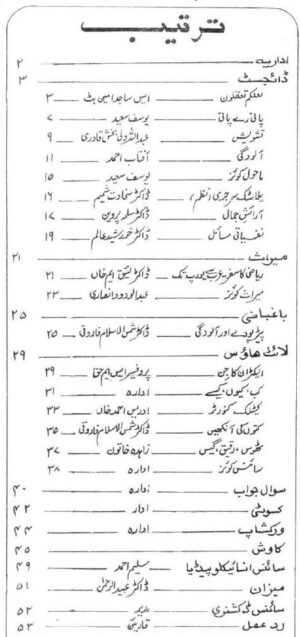 ترتیب
اداریہ ۲
ڈائجسٹ ۳
لعلکم تعقلون ایس ساجد امین بٹ ۳
پانی رے پانی یوسف سعید ۷
تشویش عبداللہ ولی بخش قادری ۹
آلودگی آفتاب احمد ۱۱
ماحول کوئز یوسف سعید ۱۵
پلاسٹک سرجری (نظم) ڈاکٹر سخاوت شمیم ۱۶
آرائش جمال ڈاکٹر سلمہ پروین ۱۷
نفسیاتی مسائل ڈاکٹر خورشید عالم ۱۹
میراث ۲۱
ریاضی کا سفر عرب سے یورپ تک ڈاکٹر لئیق ایم خاں ۲۱
میراث کوئز عبدالودود انصاری ۲۳
باغبانی ۲۵
پیڑ پودے اور آلودگی ڈاکٹر شمس الاسلام فاروقی ۲۵
لائٹ ہاؤس ۲۹
الیکٹران کا جن پروفیسر ایس ایم حق ۲۹
کب، کیوں، کیسے ادارہ ۳۱
کنورٹر ادریس احمد خاں ۳۳
کی آنکھیں ڈاکٹر شمس الاسلام فاروقی ۳۵
ٹھوس، رقیق، گیس زاہدہ خاتون ۳۷
سائنس کوئز ادارہ ۳۸
سوال جواب ادارہ ۴۰
کسوٹی ادار ۴۲
ورکشاپ ادارہ ۴۴
کاوش ۴۵
سائنس انسائیکلوپیڈیا سلیم احمد ۴۹
میزان ڈاکٹر عبید الرحمٰن ۵۱
سائنس ڈکشنری مدیر ۵۲
رد عمل قارئین ۵۳